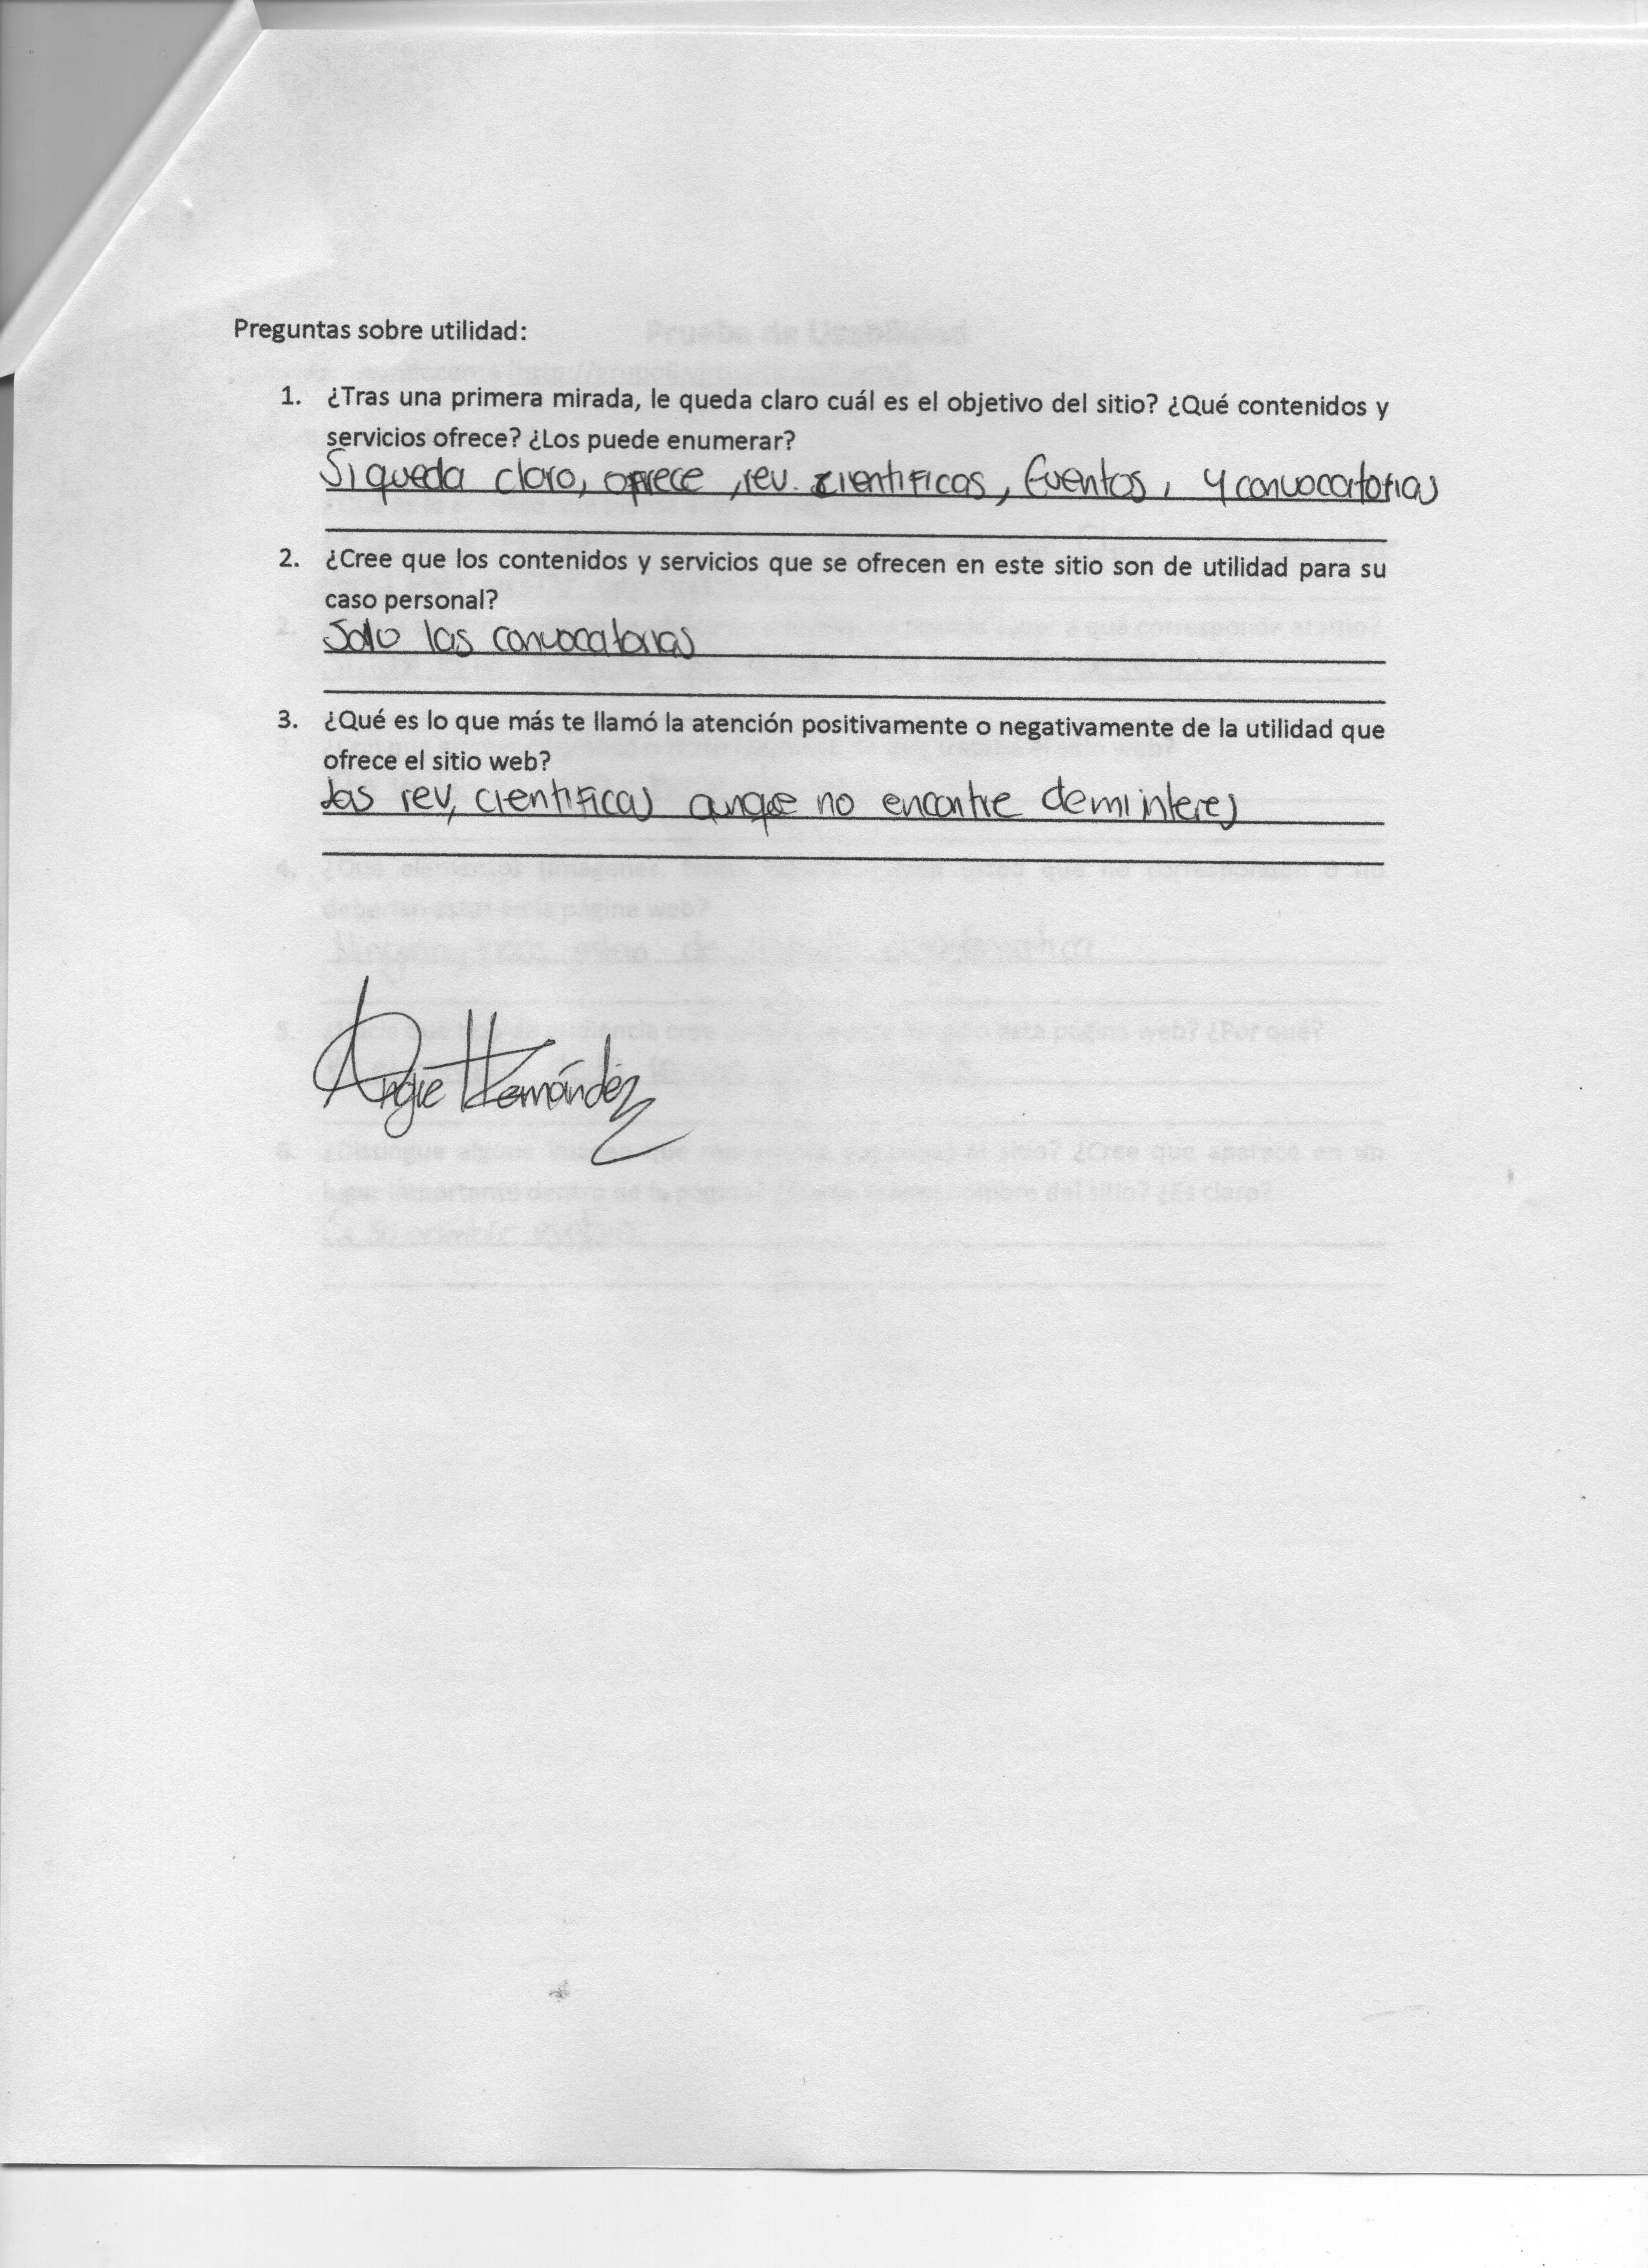 Preguntas sobre utilidad:
1. ¿Tras una primera mirada, le queda claro cuál es el objetivo del sitio? ¿Qué contenidos y
servicios ofrece? ¿Los puede enumerar?
Si queda claro, ofrece, rev. cientificas, Eventos, y convocatorias
2. ¿Cree que los contenidos y servicios que se ofrecen en este sitio son de utilidad para su
caso personal?
Solo las convocatorias
3. ¿Qué es lo que más te llamó la atención positivamente o negativamente de la utilidad que
ofrece el sitio web?
las rev, cientificas aunque no encontre de mi interes
Angie Hernández